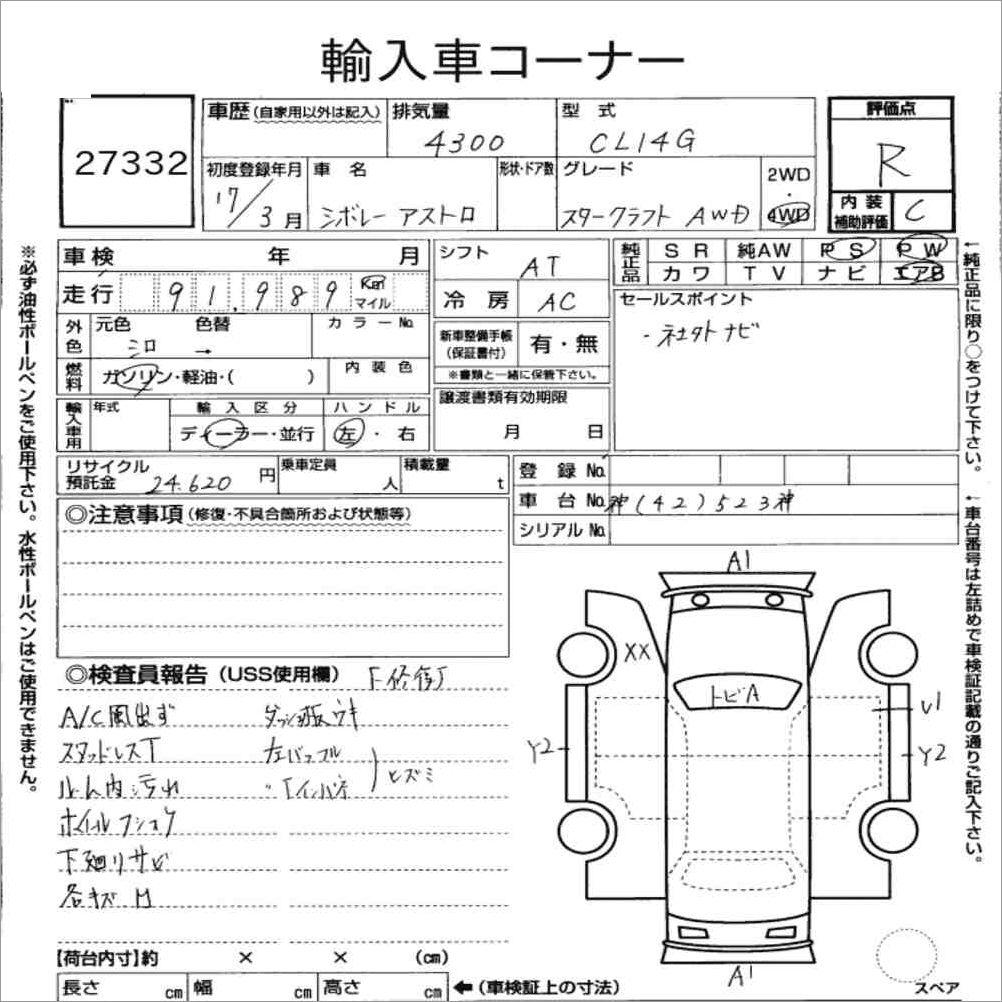 輸入車コーナー
27332
車歴(自家用以外は記入)
排気量
4300
型 式
CL14G
評価点
R
初度登録年月
17/3月
車 名
シボレー アストロ
形状・ドア数
グレード
スタークラフト AWD
2WD
・
4WD
内 装
補助評価
C
車 検 年 月
走 行 91,989 Km
マイル
シフト
AT
冷 房 AC
純正品
S R 純AW P S P W
カ ワ T V ナ ビ エアB
セールスポイント
・社外ナビ
外色
元色 色替
シロ →
カラーNo.
新車整備手帳
(保証書付)
有・無
※書類と一緒に保管下さい。
燃料
ガソリン・軽油・( )
内 装 色
譲渡書類有効期限
月 日
輸入車用
年式
輸 入 区 分
ディーラー・並行
ハ ン ド ル
左・右
リサイクル
預託金 24.620 円
乗車定員
人
積載量
t
登 録 No.
車 台 No. 神(42)523神
シリアル No.
◎注意事項(修復・不具合箇所および状態等)
◎検査員報告(USS使用欄) 「修復」
A/C風出ず
スタッドレスT
ルーム内汚れ
ホイルフショク
下廻りサビ
各キズ M
ダッシュ板ウキ
左バッフル
〃 Fインパネ
)ヒズミ
A1
XX
トビA
U1
Y2
Y2
A1
スペア
【荷台内寸】約 × × (cm)
長さ cm 幅 cm 高さ cm ←(車検証上の寸法)
※必ず油性ボールペンをご使用下さい。水性ボールペンはご使用できません。
↑純正品に限り○をつけて下さい。
↑車台番号は左詰めで車検証記載の通りご記入下さい。